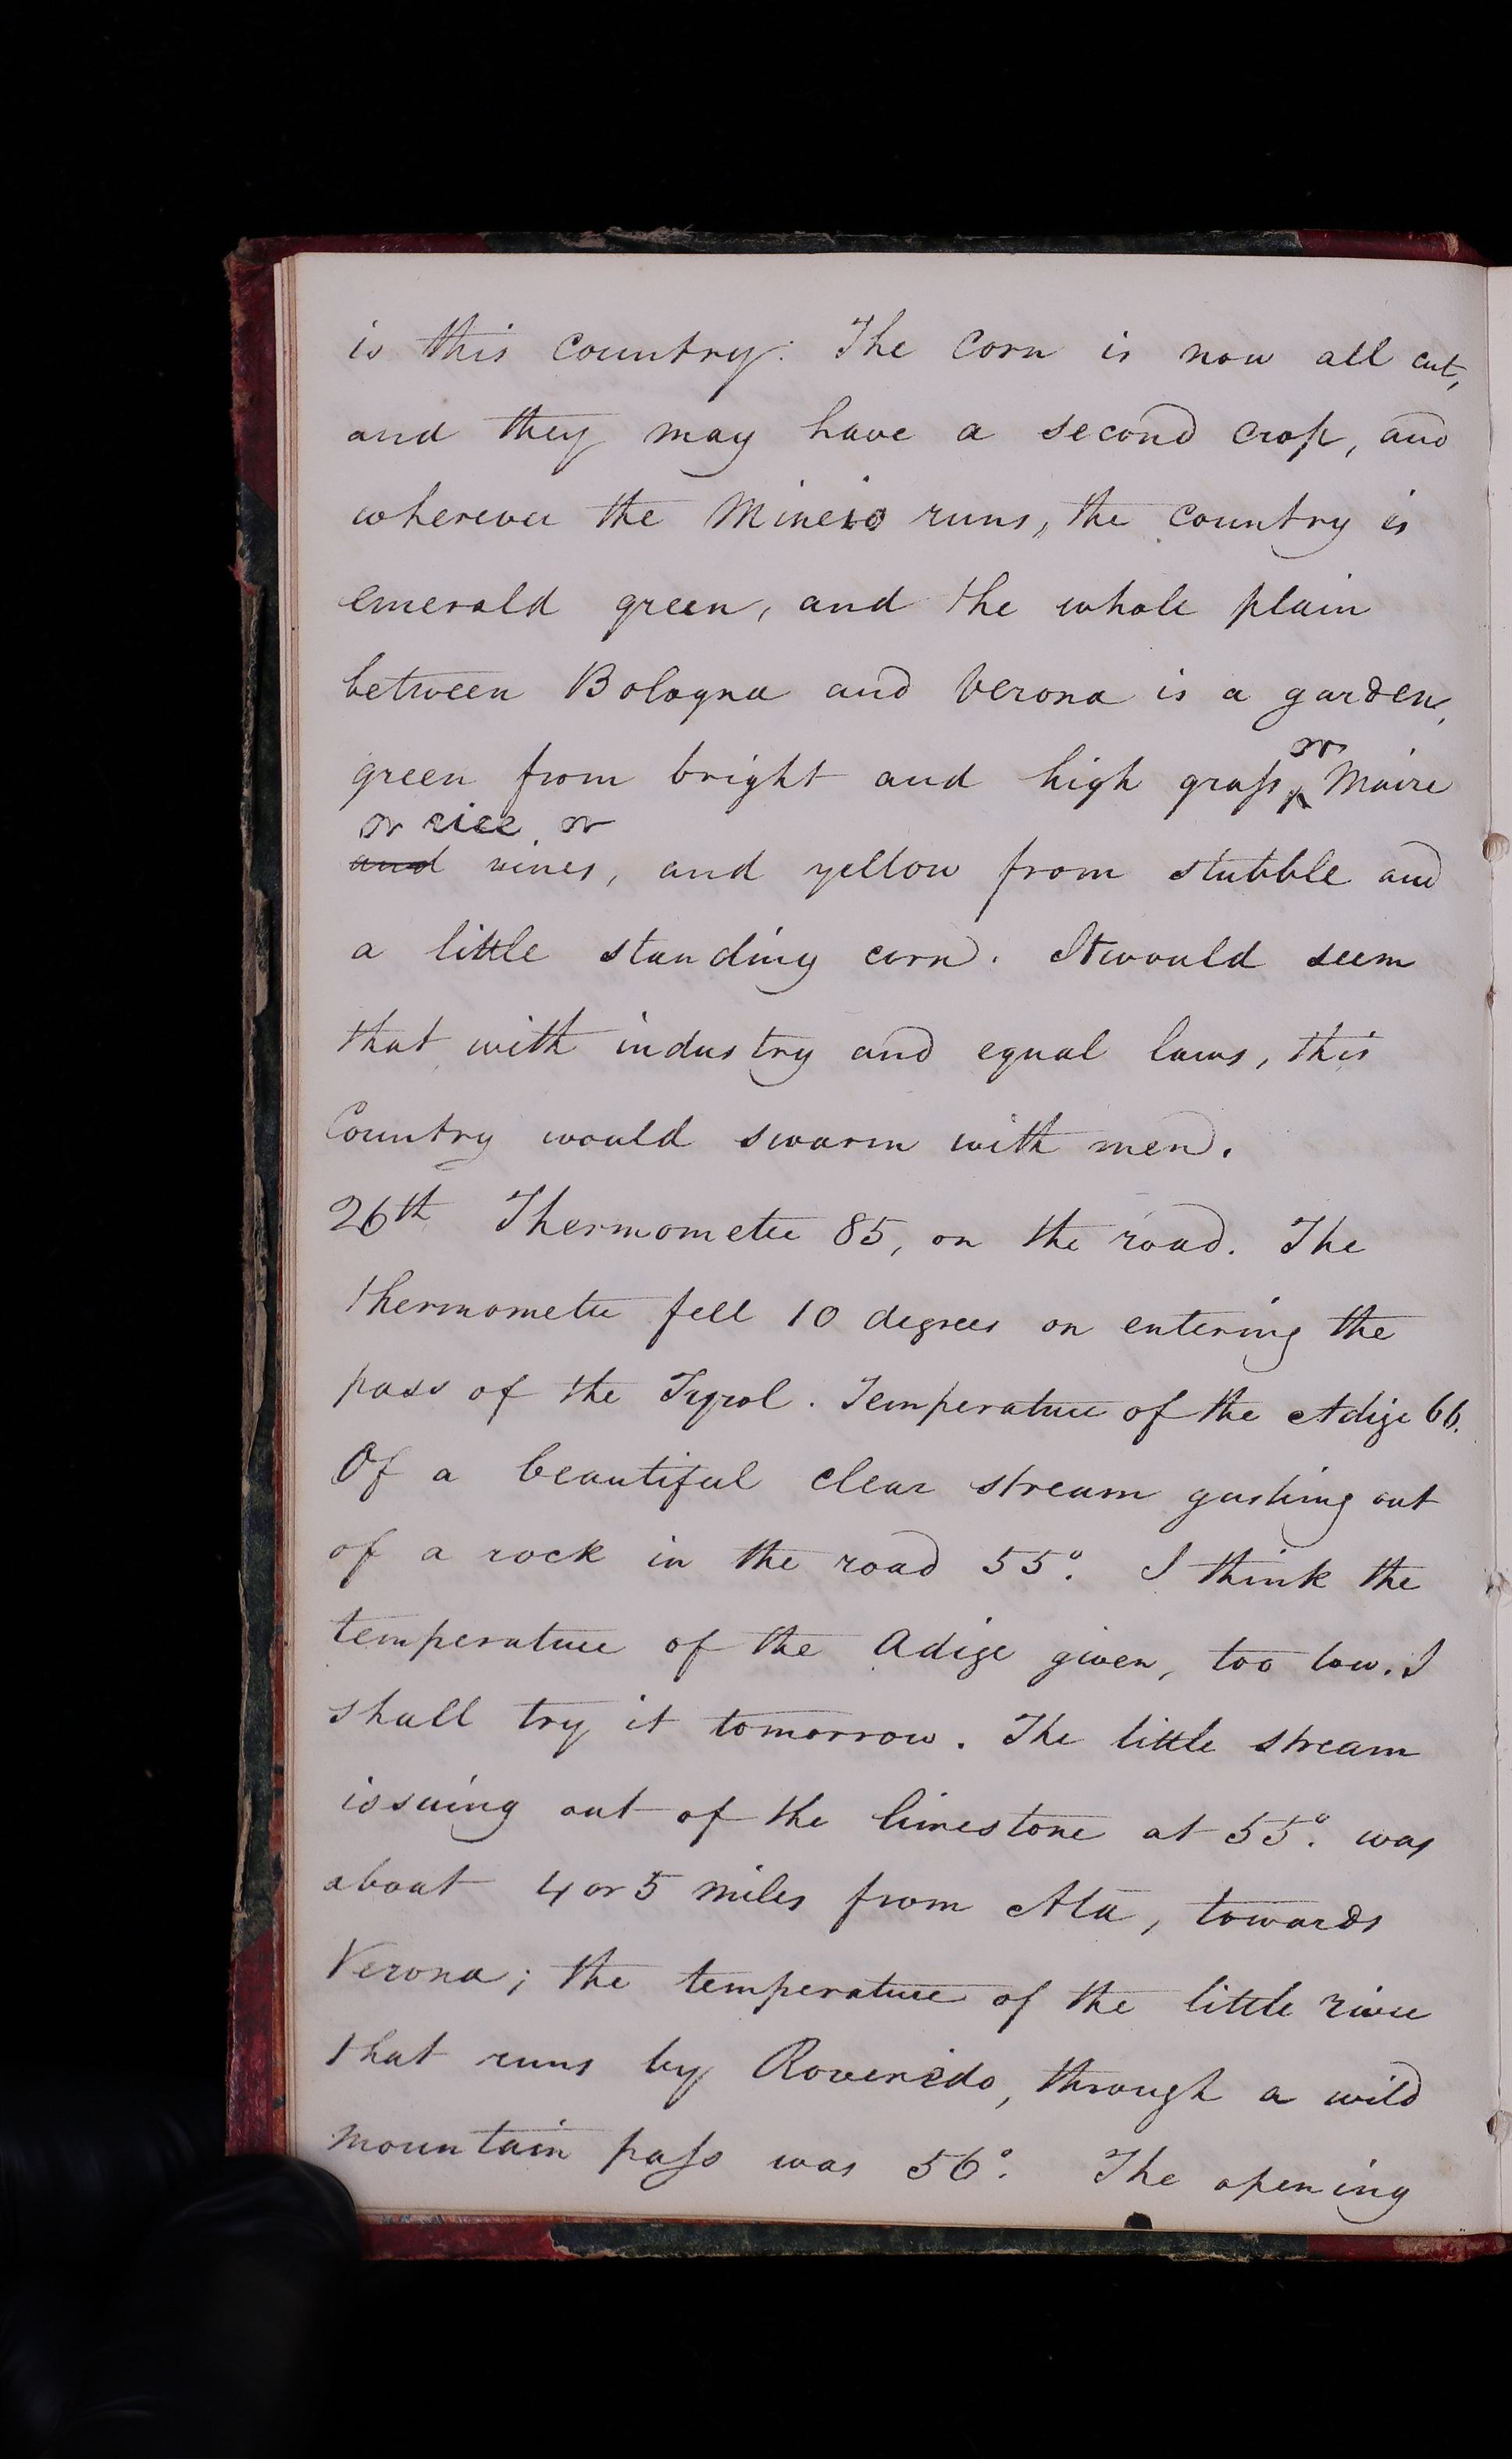 is this country. The corn is now all cut,
and they may have a second crop, and
wherever the Mineio runs, the country is
emerald green, and the whole plain
between Bologna and Verona is a garden,
green from bright and high graſs, or Maize
or rice or
and vines, and yellow from stubble and
a little standing corn. It would seem
that with industry and equal laws, this
Country would swarm with men.
26th Thermometer 85, on the road. The
thermometer fell 10 degrees on entering the
pass of the Tyrol. Temperature of the Adige 66.
Of a beautiful clear stream gushing out
of a rock in the road 55°. I think the
temperature of the Adige given, too low. I
shall try it tomorrow. The little stream
issuing out of the limestone at 55°. was
about 4 or 5 miles from Ala, towards
Verona; the temperature of the little river
that runs by Roveredo, through a wild
mountain paſs was 56°. The opening